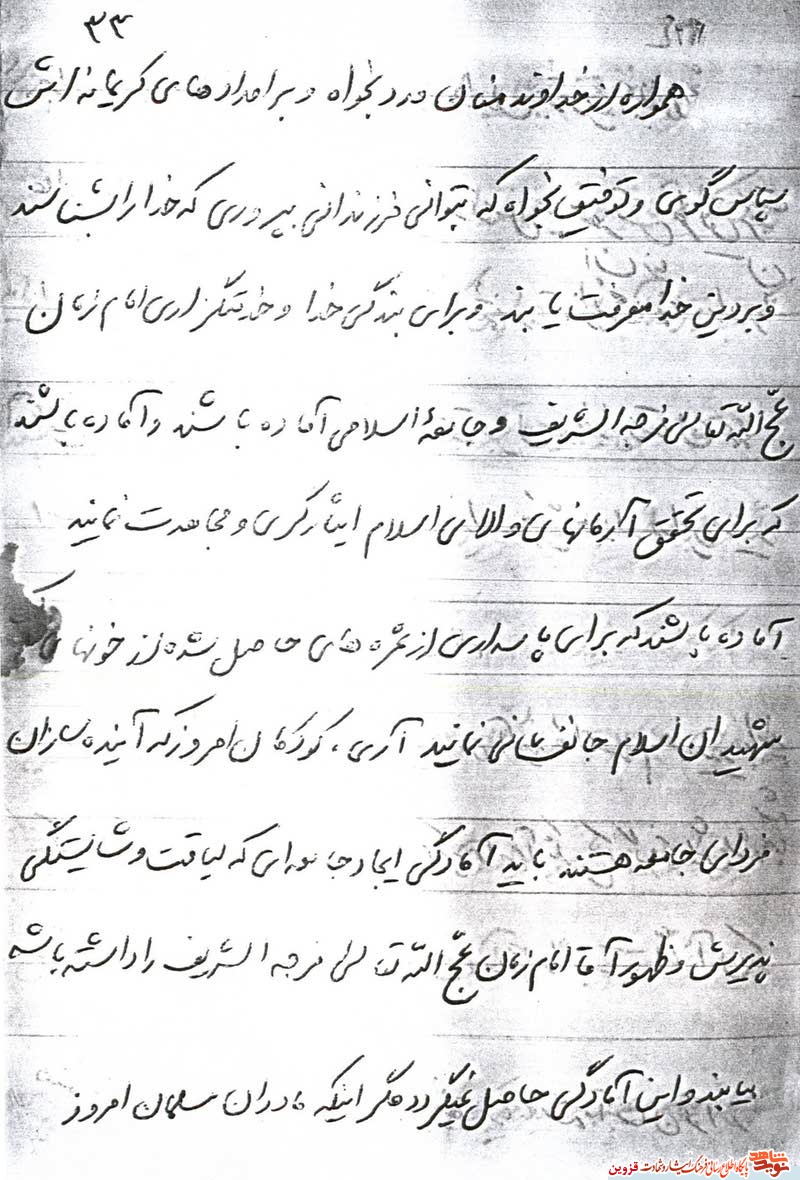 ۳۳
همواره از خداوند منان مدد بخواه و بر امدادهای کریمانه اش
سپاس گوی و توفیق بخواه که بتوانی فرزندانی بپروری که خدا را بشناسند
و بر دین خدا معرفت یابند و برای بندگی خدا و خدمتگزاری امام زمان
عجّ اللّه تعالی فرجه الشریف و جامعهٔ اسلامی آماده باشند و آماده باشند
که برای تحقق آرمانهای والای اسلام ایثارگری و مجاهدت نمایند
آماده باشند که برای پاسداری از ثمره های حاصل شده از خونهای
شهیدان اسلام جانفشانی نمایند آری ، کودکان امروز که آینده سازان
فردای جامعه هستند باید آمادگی ایجاد جامعه ای که لیاقت و شایستگی
پذیرش و ظهور آقا امام زمان عجّ اللّه تعالی فرجه الشریف را داشته باشد
بیابند و این آمادگی حاصل نمیگردد مگر اینکه مادران مسلمان امروز
نوید شاهد پایگاه اطلاع رسانی فرهنگ ایثار و شهادت قزوین